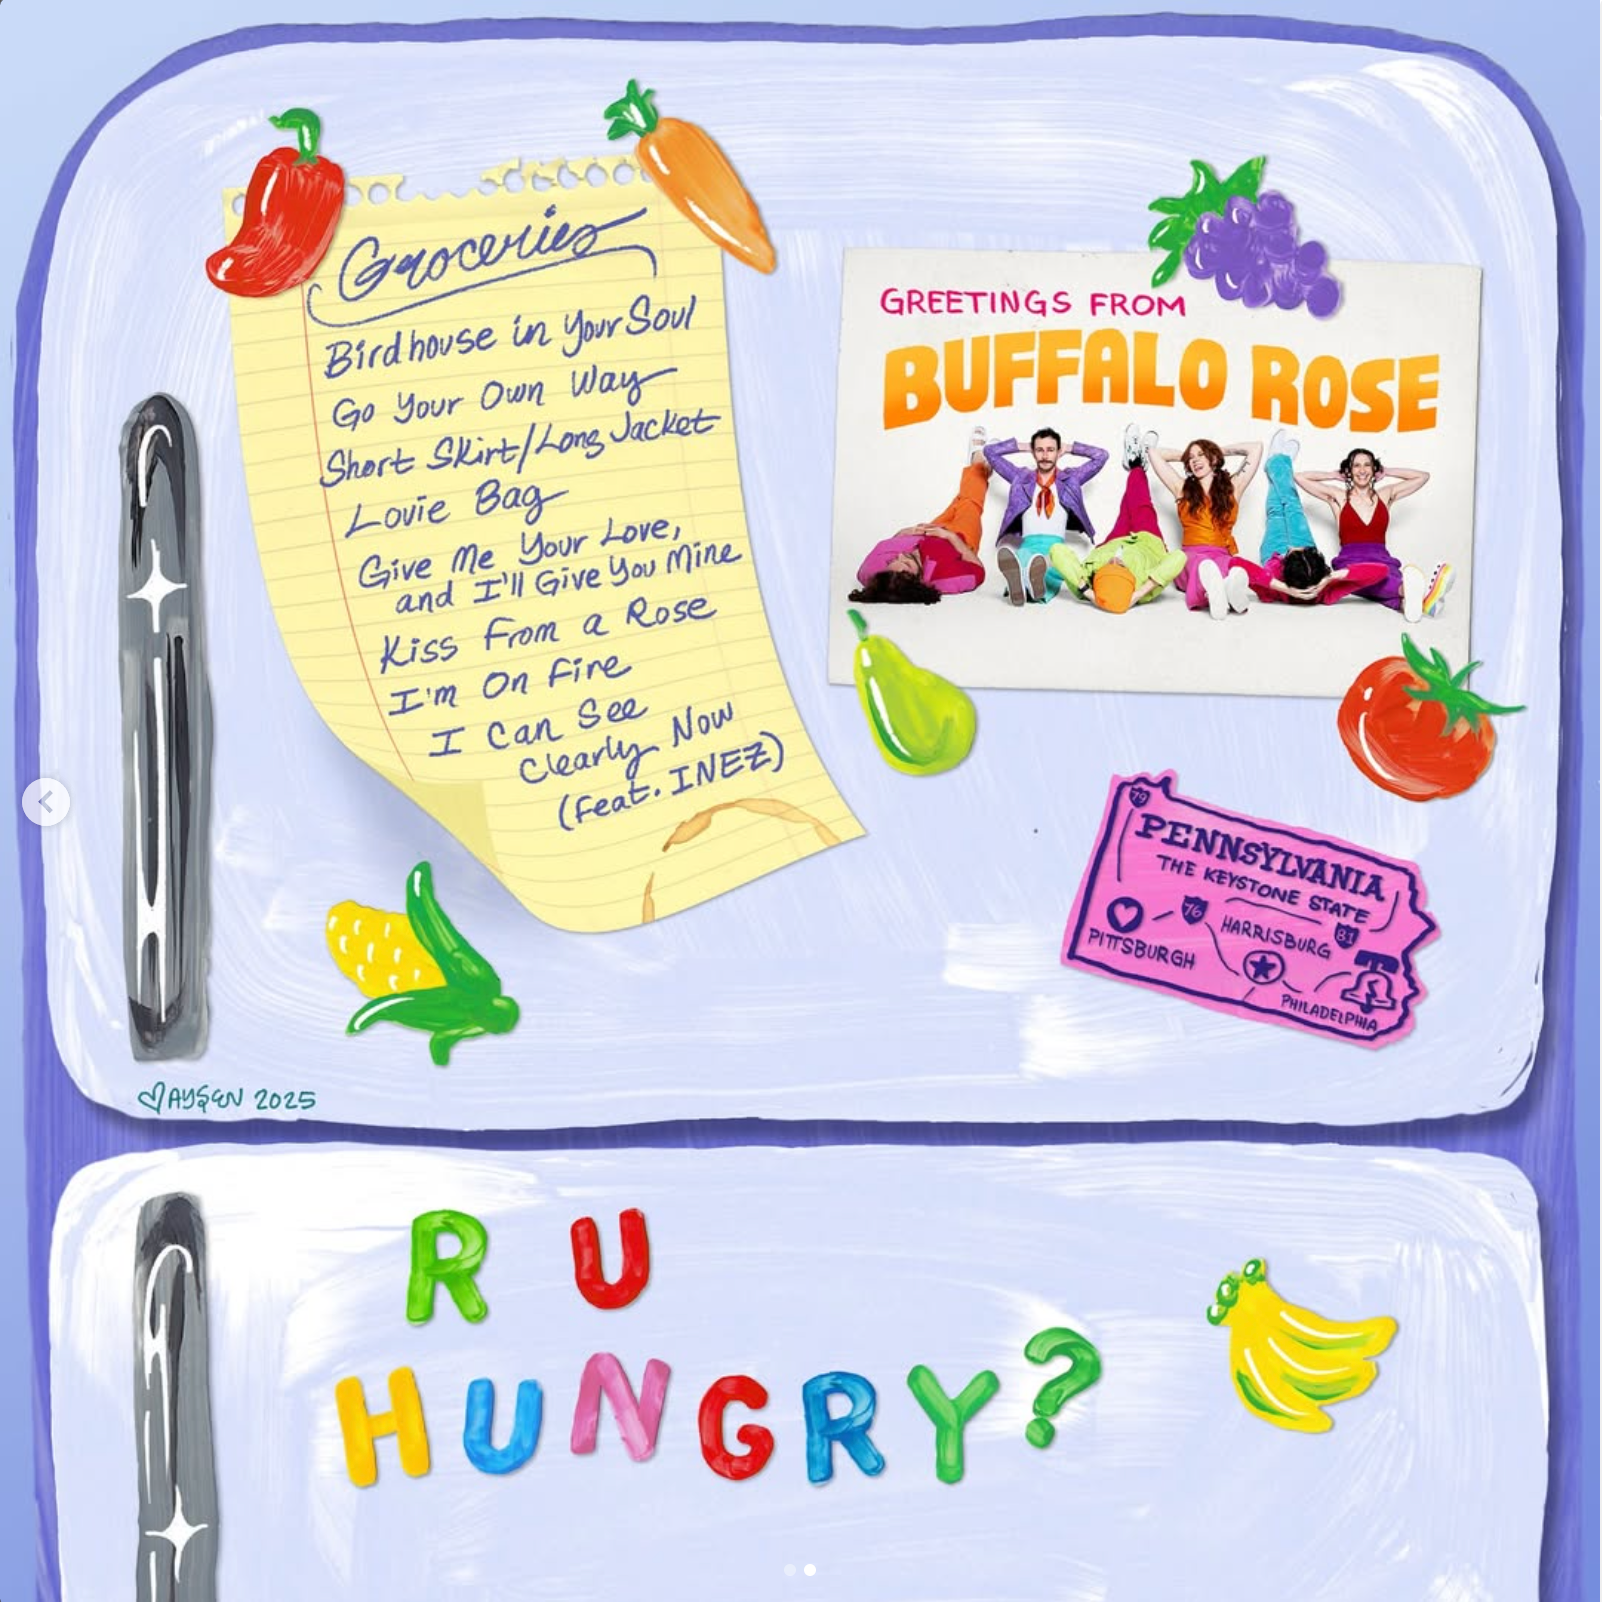 Groceries
Birdhouse in Your Soul
Go Your Own Way
Short Skirt/Long Jacket
Lovie Bag
Give Me Your Love,
and I'll Give You Mine
Kiss From a Rose
I'm On Fire
I Can See
Clearly Now
(feat. INEZ)
GREETINGS FROM
BUFFALO ROSE
79
PENNSYLVANIA
THE KEYSTONE STATE
76
HARRISBURG
81
PITTSBURGH
PHILADELPHIA
AYŞEN 2025
R U
HUNGRY?